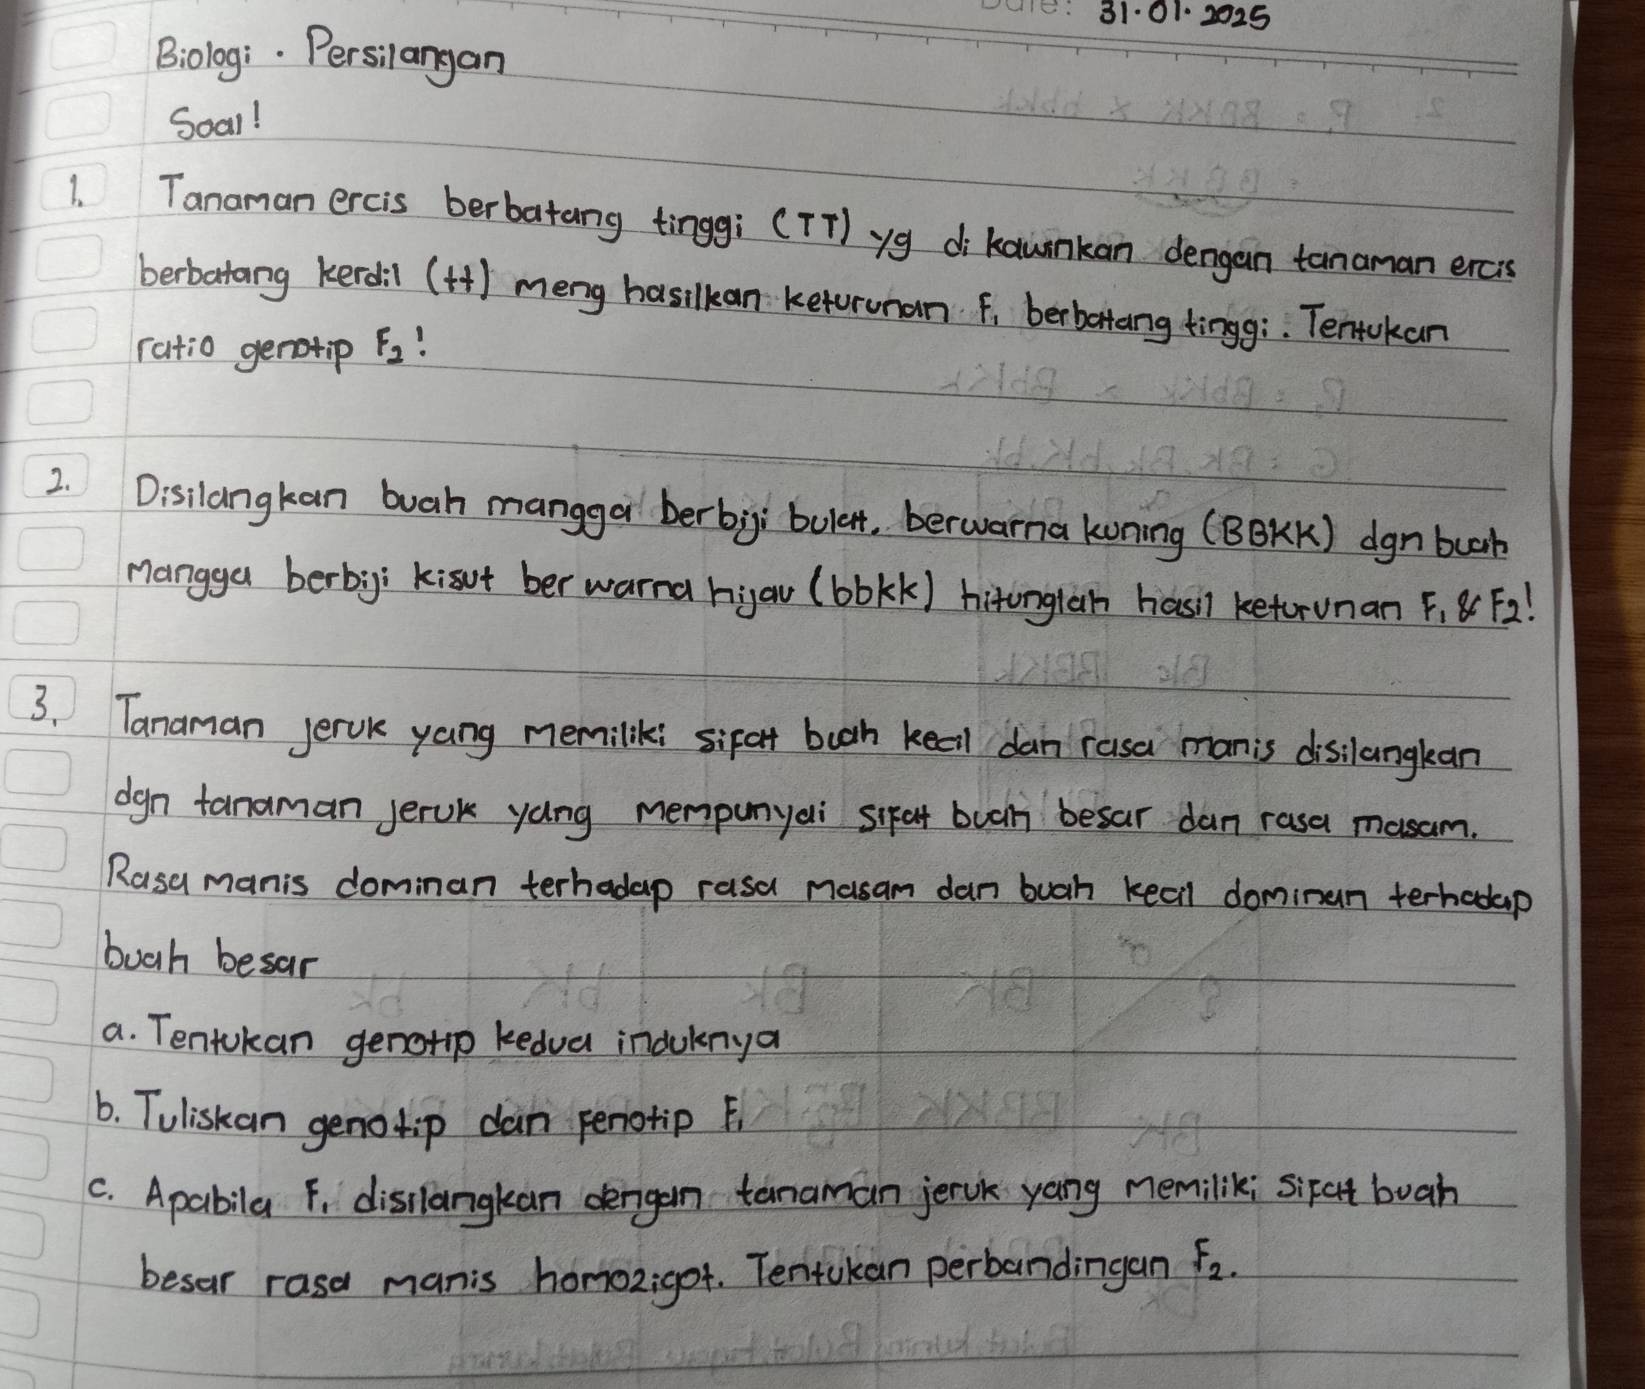 Date: 31.01.2025
Biologi . Persilangan
Soal!
1. Tanaman ercis berbatang tinggi (TT) yg di kawinkan dengan tanaman ercis
berbatang kerdil (tt) meng hasilkan keturunan F₁ berbatang tinggi. Tentukan
ratio genotip F₂!
2. Disilangkan buah mangga berbiji bulat, berwarna kuning (BBKK) dgn buah
Mangga berbiji kisut ber warna hijau (bbkk) hitunglah hasil keturunan F₁ & F₂!
3. Tanaman jeruk yang memiliki sifat buah kecil dan rasa manis disilangkan
dgn tanaman jeruk yang mempunyai sifat buah besar dan rasa masam.
Rasa manis dominan terhadap rasa masam dan buah kecil dominan terhadap
buah besar
a. Tentukan genotip kedua induknya
b. Tuliskan genotip dan fenotip F₁
c. Apabila F₁ disilangkan dengan tanaman jeruk yang memiliki sifat buah
besar rasa manis homozigot. Tentukan perbandingan F₂.